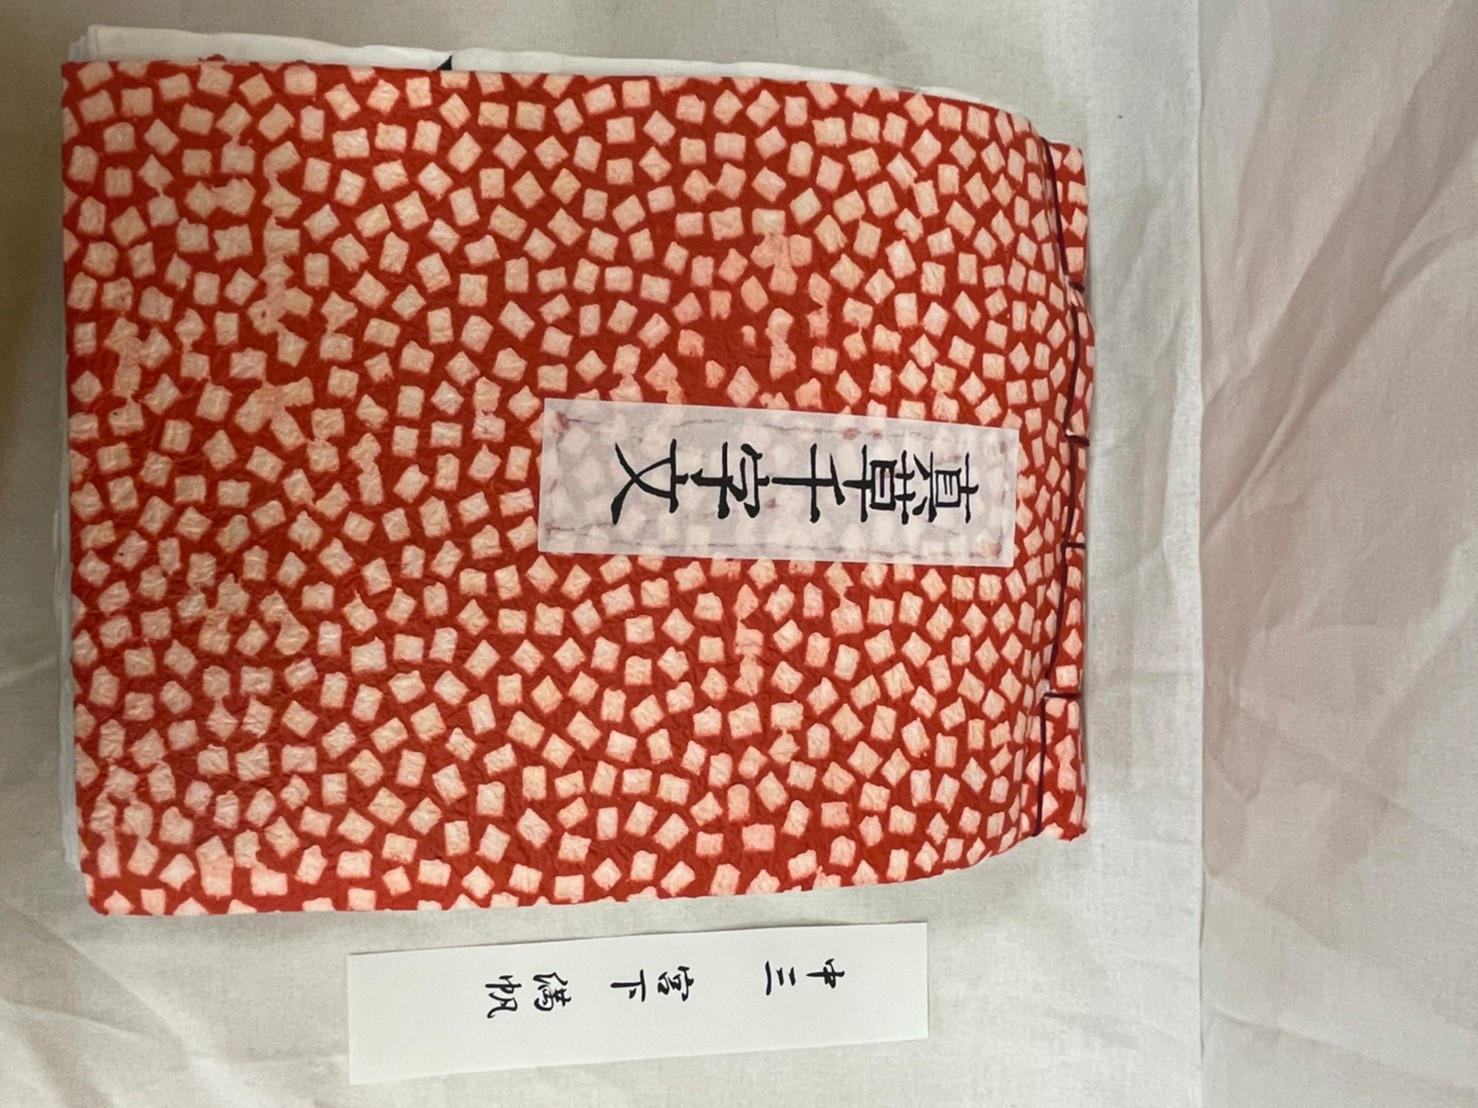 真草千字文
中三 宮下 満帆